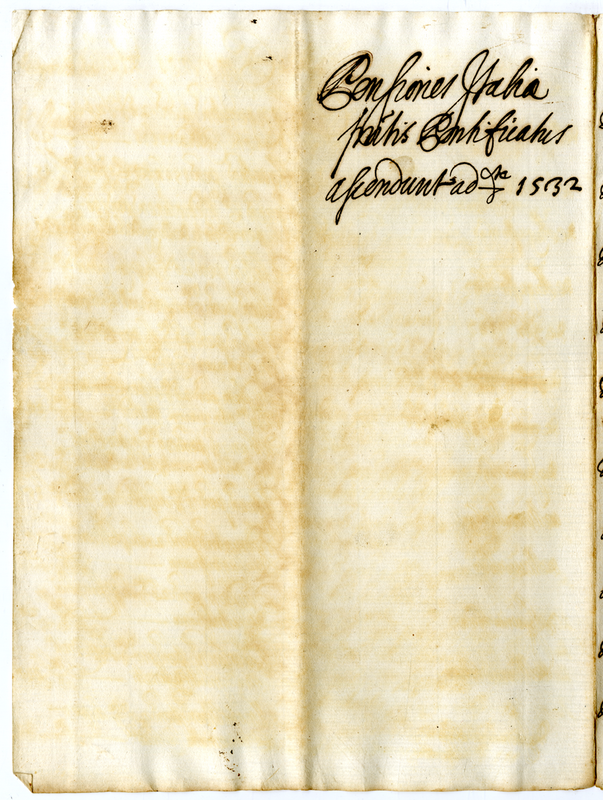 Pensiones Italia
Pontificatus
ascendunt ad 1532